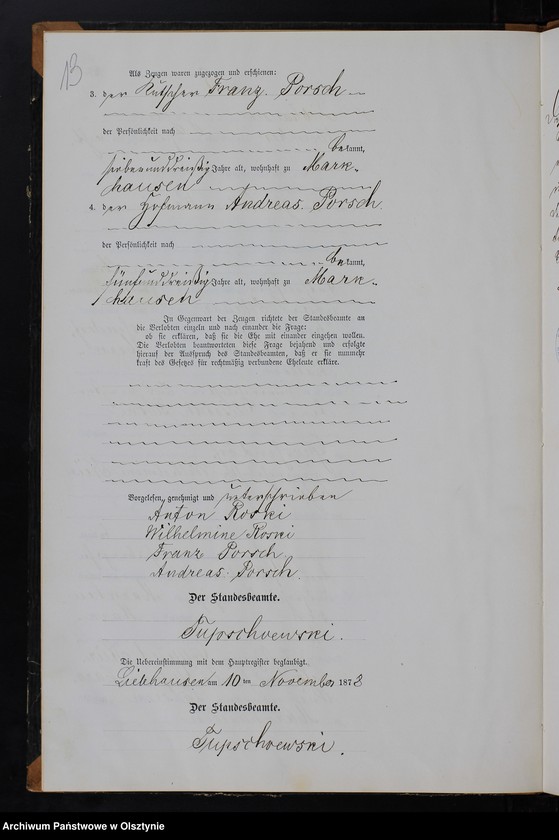 13
Als Zeugen waren zugezogen und erschienen:
3. der Kutscher Franz Porsch
der Persönlichkeit nach
bekannt,
siebenunddreißig Jahre alt, wohnhaft zu Mark-
hausen
4. der Hofmann Andreas Porsch
der Persönlichkeit nach
bekannt,
fünfunddreißig Jahre alt, wohnhaft zu Mark-
hausen
In Gegenwart der Zeugen richtete der Standesbeamte an
die Verlobten einzeln und nach einander die Frage:
ob sie erklären, daß sie die Ehe mit einander eingehen wollen.
Die Verlobten beantworteten diese Frage bejahend und erfolgte
hierauf der Ausspruch des Standesbeamten, daß er sie nunmehr
kraft des Gesetzes für rechtmäßig verbundene Eheleute erkläre.
Vorgelesen, genehmigt und unterschrieben
Anton Roski
Wilhelmine Roski
Franz Porsch
Andreas Porsch.
Der Standesbeamte.
Die Uebereinstimmung mit dem Hauptregister beglaubigt.
am 10 ten November 1878
Der Standesbeamte.
Archiwum Państwowe w Olsztynie